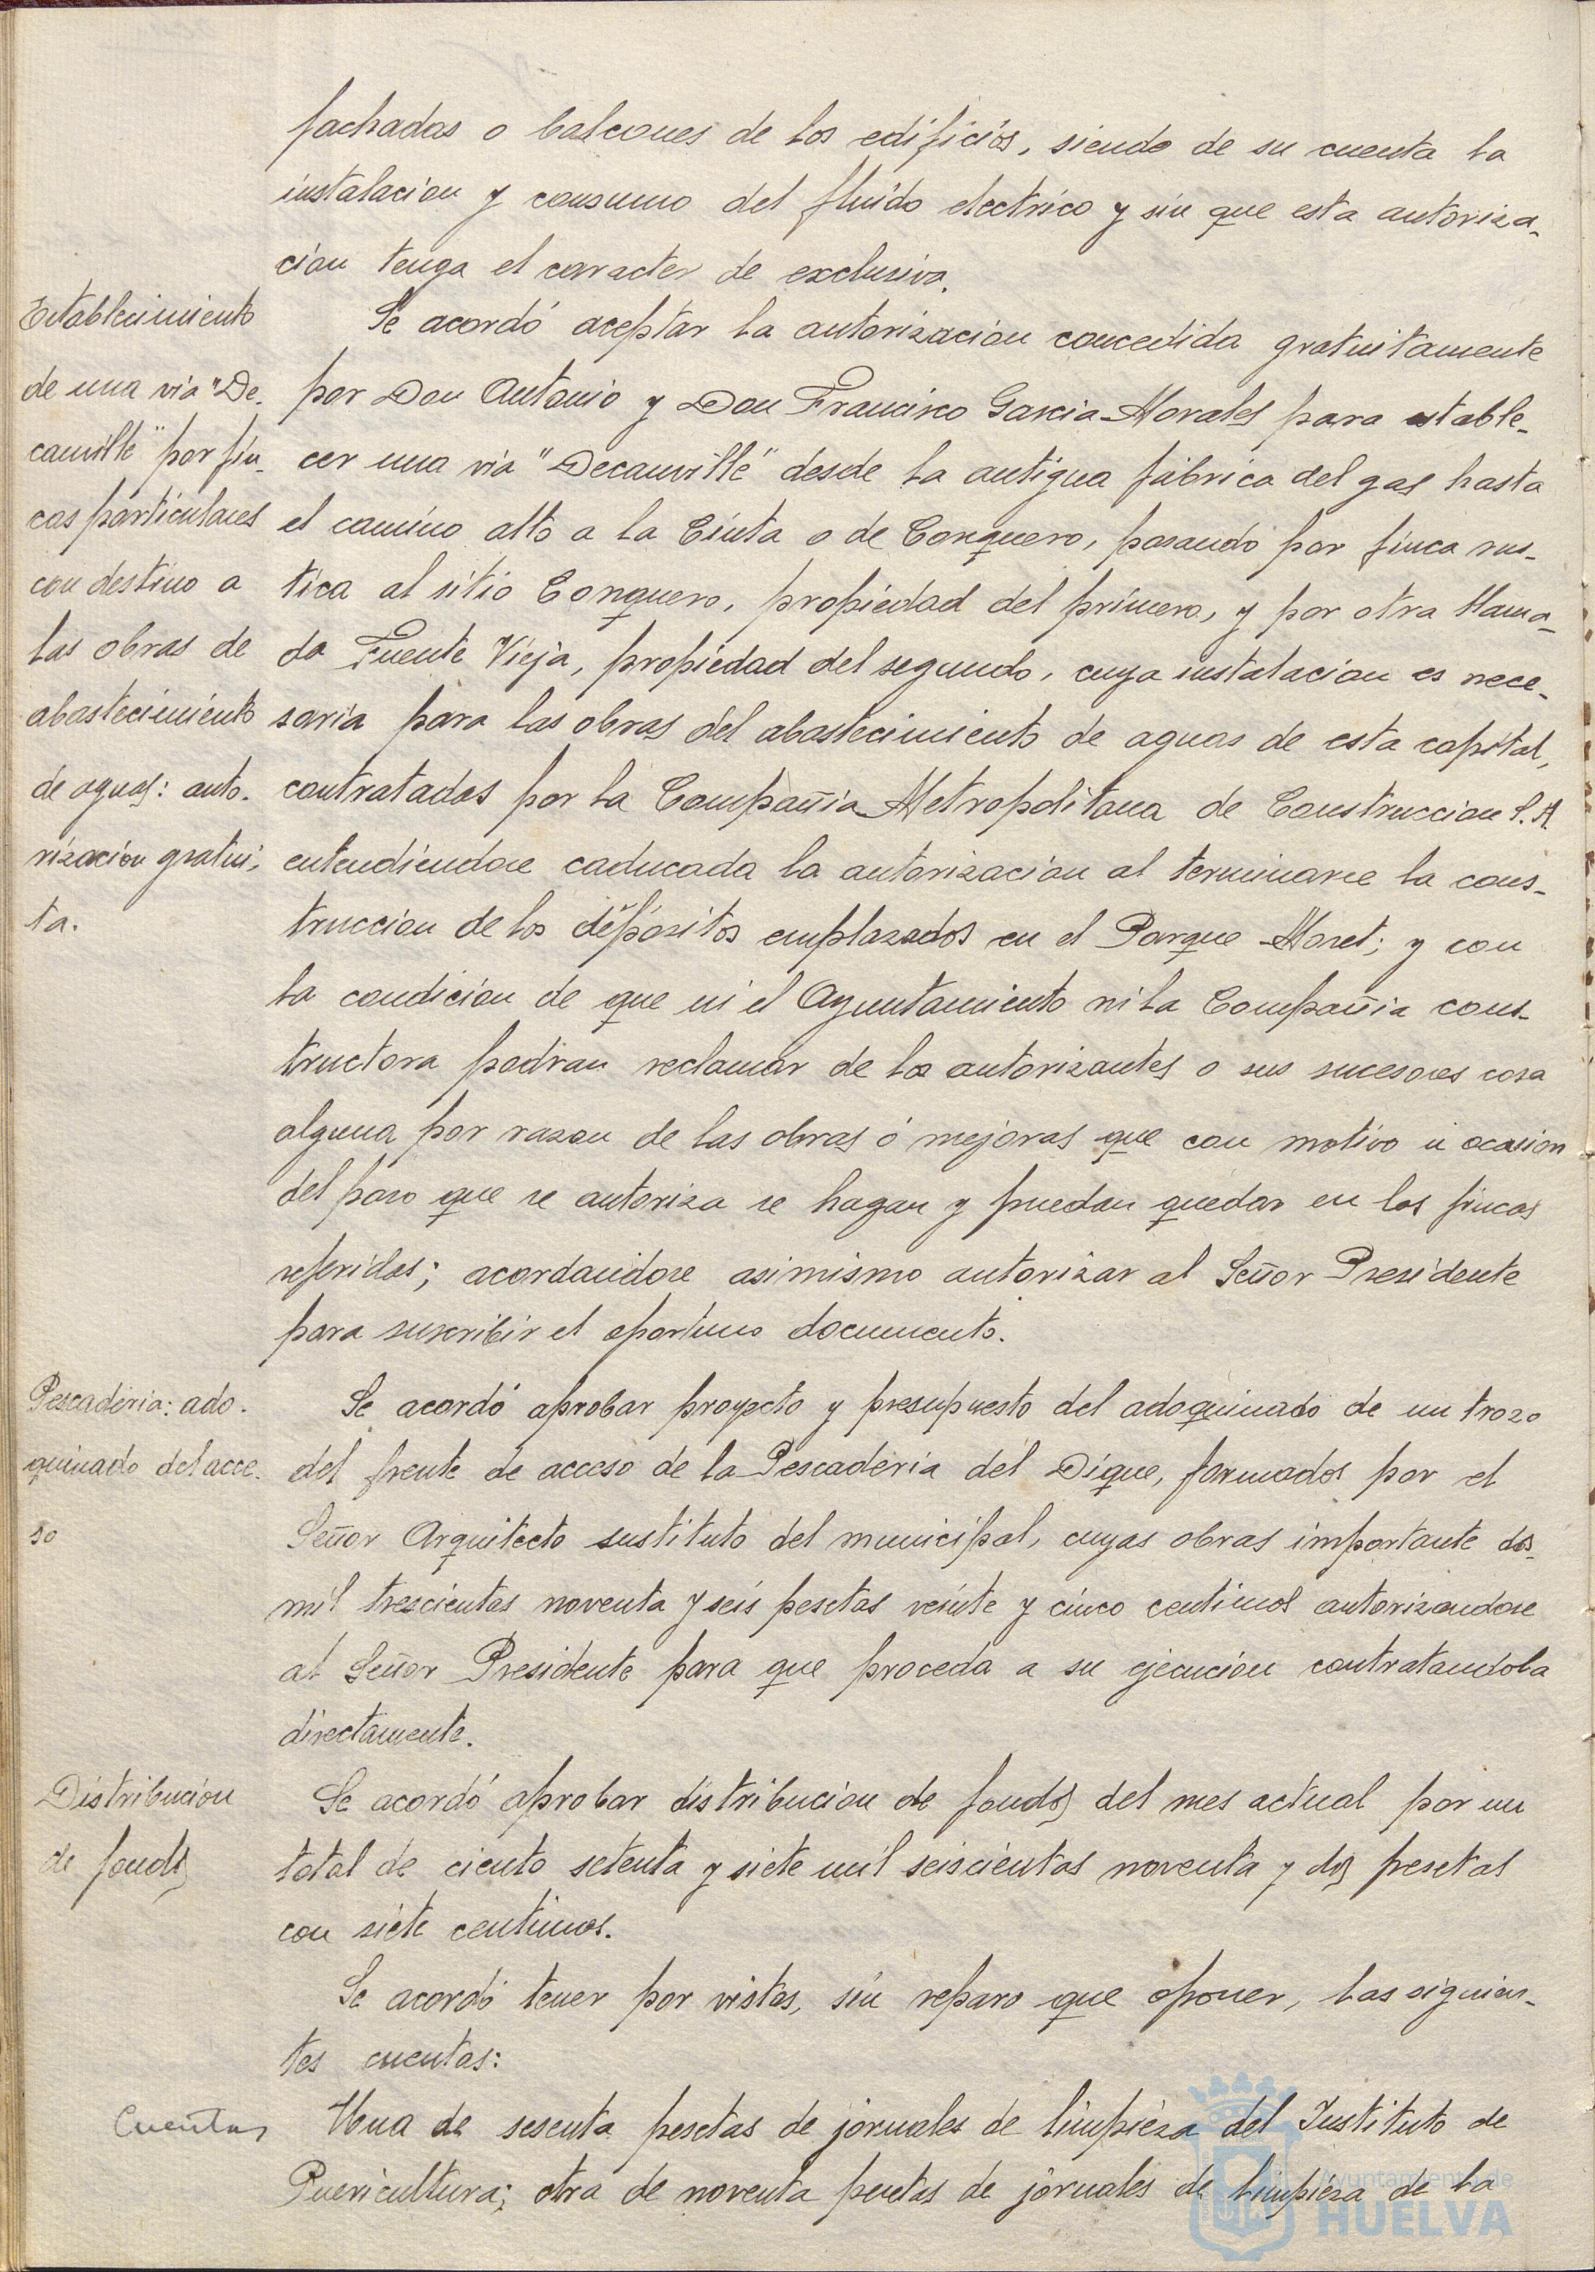 fachadas o balcones de los edificios, siendo de su cuenta la
instalacion y consumo del fluido electrico y sin que esta autoriza-
cion tenga el caracter de exclusiva.
Establecimiento
de una via "De-
cauville" por fin-
cas particulares
con destino a
las obras de
abastecimiento
de aguas: auto-
rización gratui-
ta.
Se acordó aceptar la autorizacion concedida gratuitamente
por Don Antonio y Don Francisco Garcia Morales para estable-
cer una via "Decauville" desde la antigua fábrica del gas hasta
el camino alto a la Cinta o de Conquero, pasando por finca rus-
tica al sitio Conquero, propiedad del primero, y por otra llama-
da Fuente Vieja, propiedad del segundo, cuya instalacion es nece-
saria para las obras del abastecimiento de aguas de esta capital,
contratadas por la Compañia Metropolitana de Construccion S.A.
entendiendose caducada la autorizacion al terminarse la cons-
truccion de los depósitos emplazados en el Parque Moret; y con
la condicion de que ni el Ayuntamiento ni la Compañia cons-
tructora podran reclamar de los autorizantes o sus sucesores cosa
alguna por razon de las obras ó mejoras que con motivo u ocasion
del paso que se autoriza se hagan y puedan quedar en las fincas
referidas; acordandose asimismo autorizar al Señor Presidente
para suscribir el oportuno documento.
Pescaderia: ado-
quinado del acce-
so
Se acordó aprobar proyecto y presupuesto del adoquinado de un trozo
del frente de acceso de la Pescaderia del Dique, formados por el
Señor Arquitecto sustituto del municipal, cuyas obras importante dos
mil trescientas noventa y seis pesetas veinte y cinco centimos autorizandose
al Señor Presidente para que proceda a su ejecucion contratandola
directamente.
Distribucion
de fondos
Se acordó aprobar distribucion de fondos del mes actual por un
total de ciento setenta y siete mil seiscientas noventa y dos pesetas
con siete centimos.
Se acordó tener por vistas, sin reparo que oponer, las siguien-
tes cuentas:
Cuentas
Una de sesenta pesetas de jornales de limpieza del Instituto de
Puericultura; otra de noventa pesetas de jornales de limpieza de la
Ayuntamiento de
HUELVA